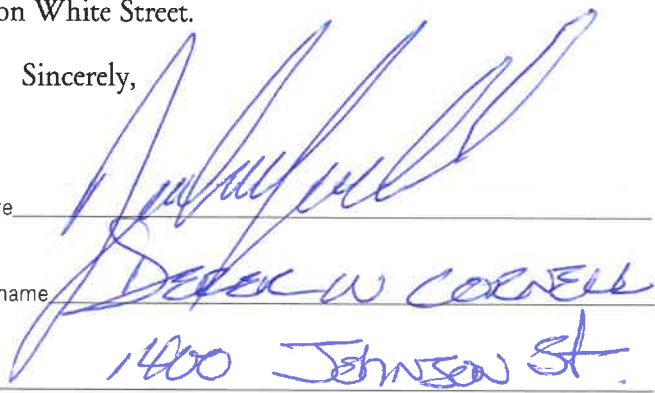 on White Street.
Sincerely,
re
name DEREK W CORNELL
1400 JOHNSON St.